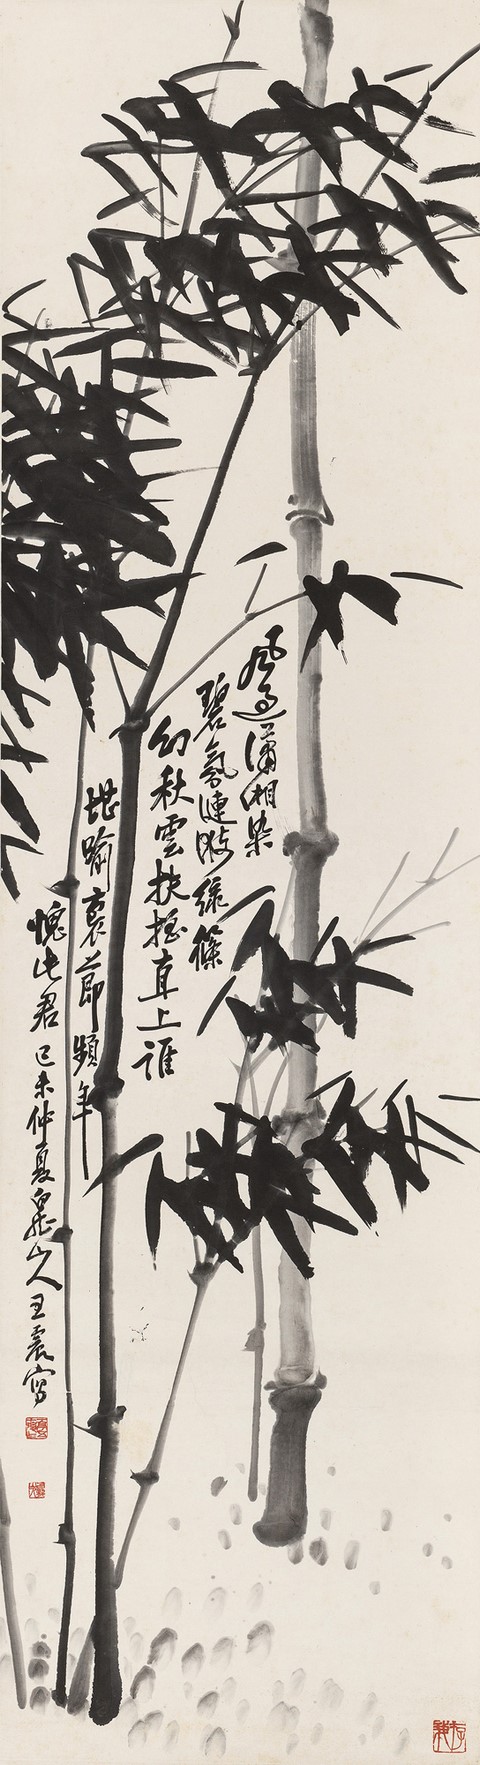 風過瀟湘染
碧氛漣漪綠篠
幻秋雲扶搖直上誰
堪踰衷節頻年
愧此君 己未仲夏白龍山人王震寫